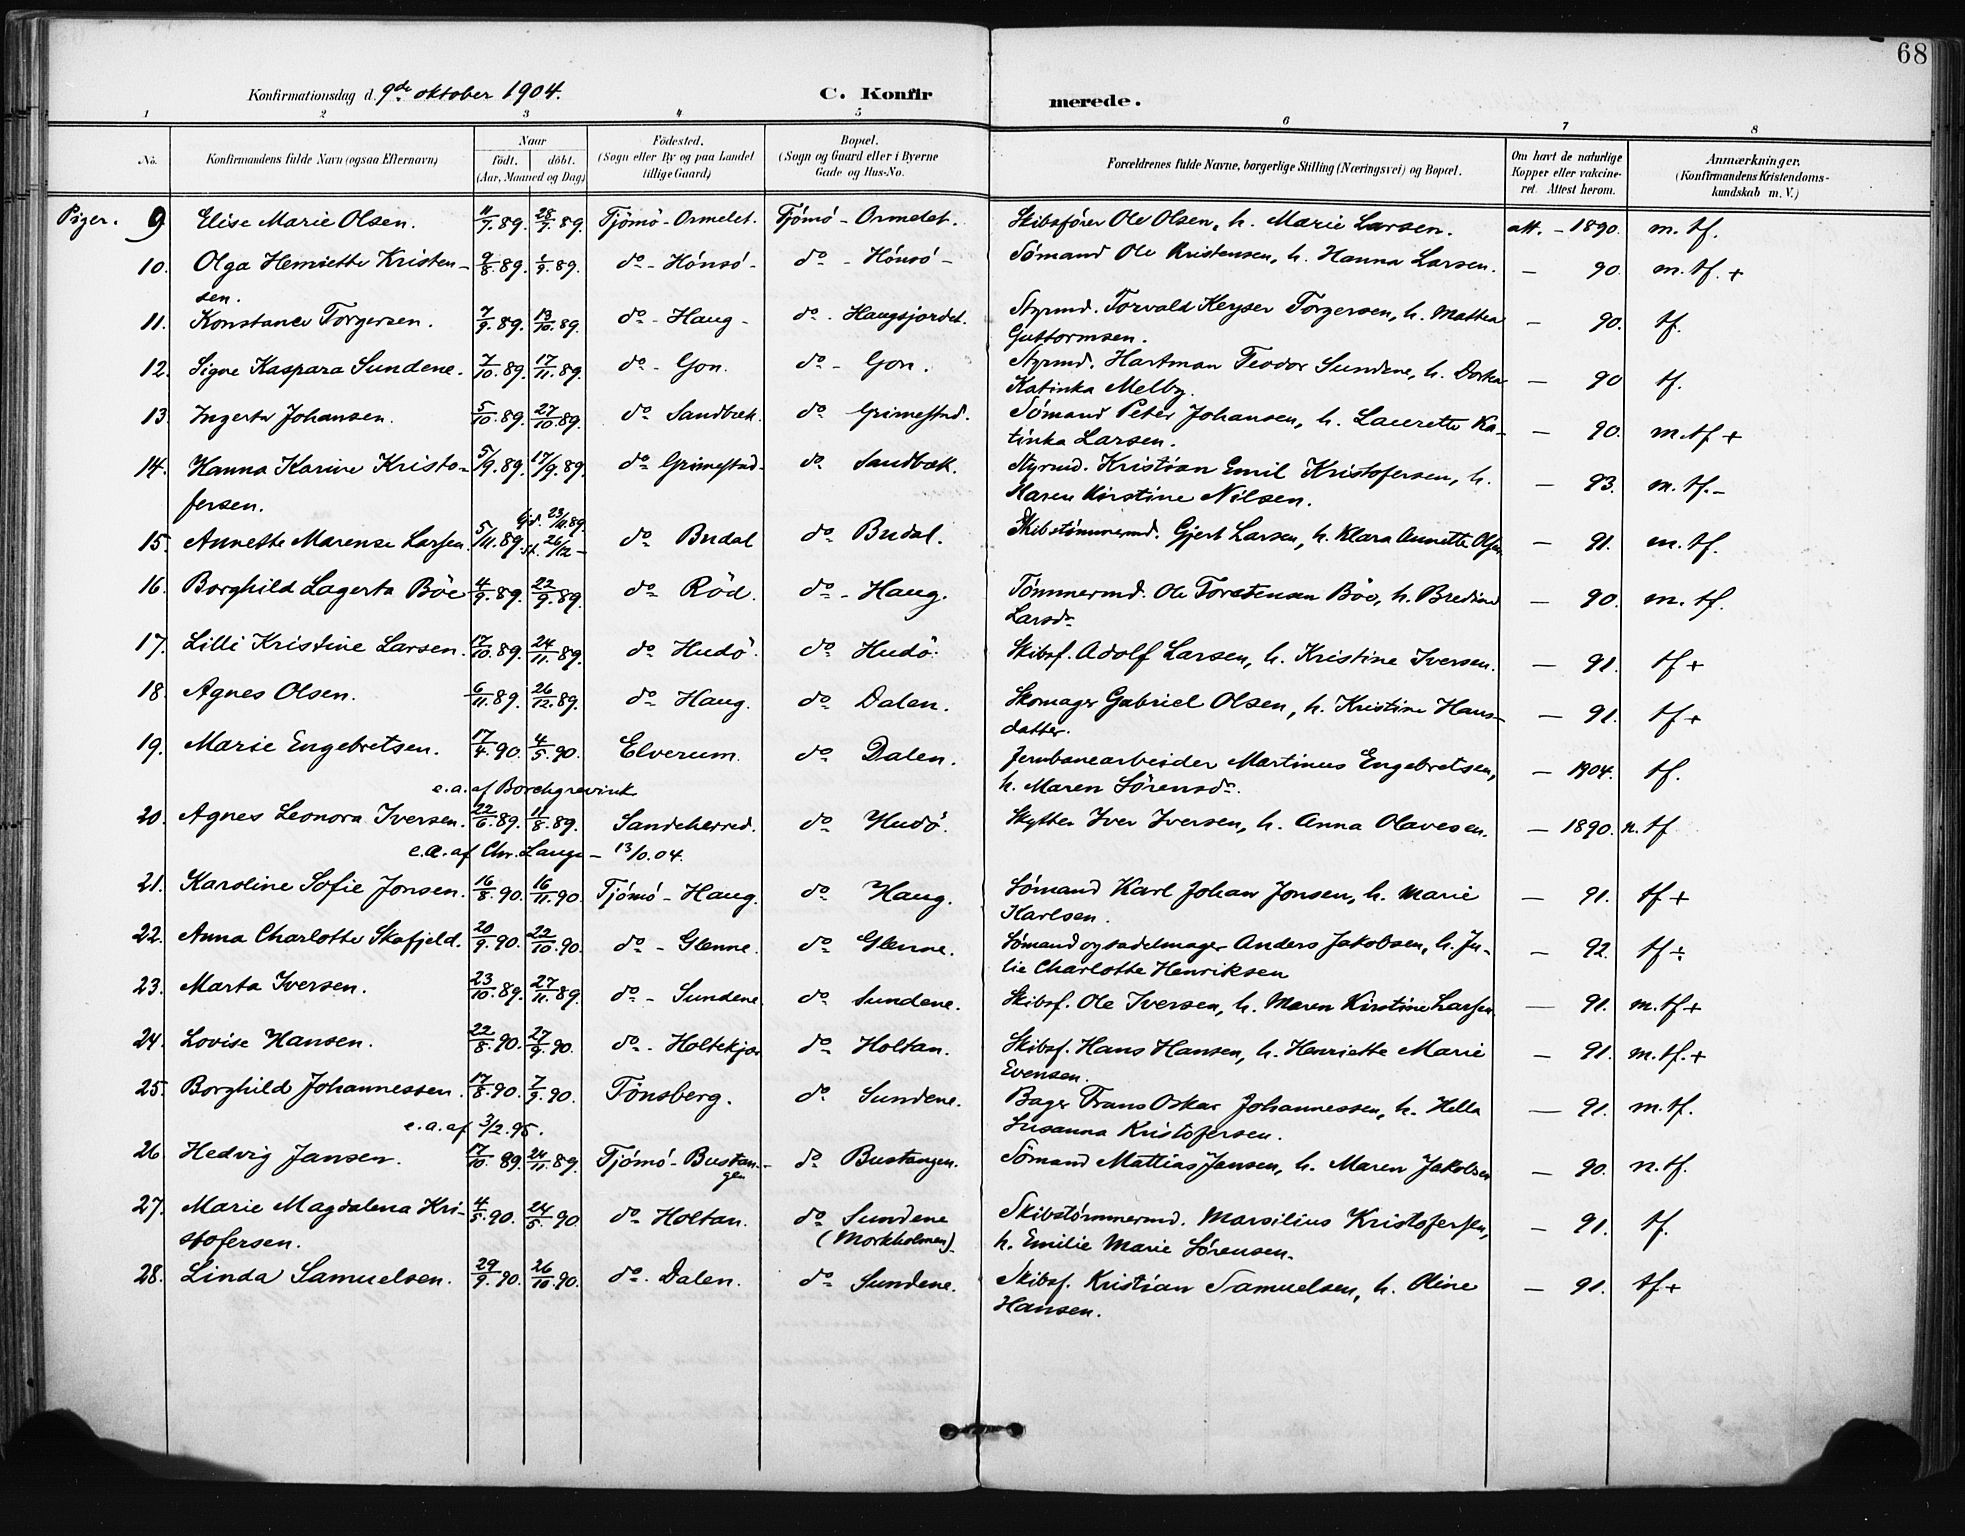 68
Konfirmationsdag d. 9de oktober 1904.
C. Konfirmerede.
1 2 3 4 5 6 7 8
No.
Konfirmandens fulde Navn (ogsaa Efternavn)
Naar
födt. döbt.
(Aar, Maaned og Dag)
Födested.
(Sogn eller By og paa Landet
tillige Gaard)
Bopæl.
(Sogn og Gaard eller i Byerne
Gade og Hus-No.
Forældrenes fulde Navne, borgerlige Stilling (Næringsvei) og Bopæl.
Om havt de naturlige
Kopper eller vakcine-
ret. Attest herom.
Anmærkninger.
(Konfirmandens Kristendoms-
kundskab m. V.)
Piger. 9 Elise Marie Olsen. 11/9.89. 28/9.89. Tjömö-Ormelet. Tjömö-Ormelet. Skibsfører Ole Olsen, h. Marie Larsen. att. - 1890. m. tf.
10. Olga Henriette Kristen- 9/8.89. 1/9.89. do - Hönsö - do - Hönsö - Sömand Ole Kristensen, h. Hanna Larsen. - 90. m. tf. +
sen.
11. Konstance Torgersen. 7/9.89. 13/10.89. do - Haug - do - Haugsjordet. Styrmd. Torvald Keyser Torgersen, h. Mathea - 90. tf.
Guttormsen.
12. Signe Kaspara Sundene. 7/10.89. 17/11.89. do - Gon. do - Gon. Styrmd. Hartman Teodor Sundene, h. Dorthea - 90 tf.
Katinka Melby.
13. Ingerta Johansen. 5/10.89. 27/10.89. do Sandbæk. do Grimestad. Sömand Peter Johansen, h. Laurette Ka- - 90. m. tf +
tinka Larsen.
14. Hanna Karine Kristo- 5/9.89. 17/9.89. do Grimestad. do Sandbæk. Styrmd. Kristian Emil Kristofersen, h. - 93. m. tf. -
fersen. Karen Kirstine Nilsen.
Gjd. 23/11.89.
15. Annette Marense Larsen. 5/11.89. st. 26/12 - do Budal do Budal. Skibstömmermd. Gjert Larsen, h. Klara Annette Olsen - 91. m. tf.
16. Borghild Lagerta Böe 4/9.89. 22/9.89. do Röd. do - Haug. Tömmermd. Ole Torstensen Böe, h. Bredine - 90. m. tf.
Larsdr
17. Lilli Kristine Larsen. 17/10.89. 24/11.89. do Hudö. do Hudö. Skibsf. Adolf Larsen, h. Kristine Iversen. - 91. tf +
18 Agnes Olsen. 6/11.89. 26/12.89. do Haug. do Dalen. Skomager Gabriel Olsen, h. Kristine Hans- - 91. tf +
datter.
19. Marie Engebretsen. 17/4.90. 4/5.90. Elverum. do Dalen. Jernbanearbeider Martinus Engebretsen, - 1904. tf.
e. a. af Borchgrevink h. Maren Sörensdr.
20. Agnes Leonora Iversen. 22/6.89. 11/8.89. Sandeherred. do Hudö. Skytter Iver Iversen, h. Anna Olavesen. - 1890. n. tf
e. a. af Chr. Lange - 13/0.04.
21. Karoline Sofie Jonsen. 16/8.90. 16/11.90. Tjömö - Haug. do Haug. Sömand Karl Johan Jonsen, h. Marie - 91. tf +
Karlsen.
22. Anna Charlotte Skafjeld. 20/9.90. 22/10.90. do - Glenne. do Glenne. Sömand og sadelmager Anders Jakobsen, h. Ju- - 92. tf ÷
lie Charlotte Henriksen
23. Marta Iversen. 23/10.89. 27/11.89. do - Sundene. do Sundene. Skibsf. Ole Iversen, h. Maren Kirstine Larsen. - 91. m. tf +
24. Lovise Hansen. 22/8.90. 27/9.90. do - Holtekjær do Holtan. Skibsf. Hans Hansen, h. Henriette Marie - 91. m. tf. +
Evensen.
25. Borghild Johannessen. 17/8.90. 7/9.90. Tönsberg. do Sundene. Bager Frans Oskar Johannessen, h. Hella - 91. m. tf.
e. a. af 3/2.95. Susanna Kristofersen.
26 Hedvig Jansen. 17/10.89. 24/11.89. Tjömö - Bustan- do Bustangen. Sömand Mattias Jansen, h. Maren Jakobsen - 90. n. tf.
gen
27. Marie Magdalena Kri- 4/5.90. 24/5.90. do Holtan. do Sundene Skibstömmermd. Marsilius Kristofersen, - 91. tf.
stofersen. (Morkholmen). h. Emilie Marie Sörensen.
28. Linda Samuelsen. 29/9.90. 26/10.90. do. Dalen. do Sundene. Skibsf. Kristian Samuelsen, h. Oline - 91. tf +
Hansen.